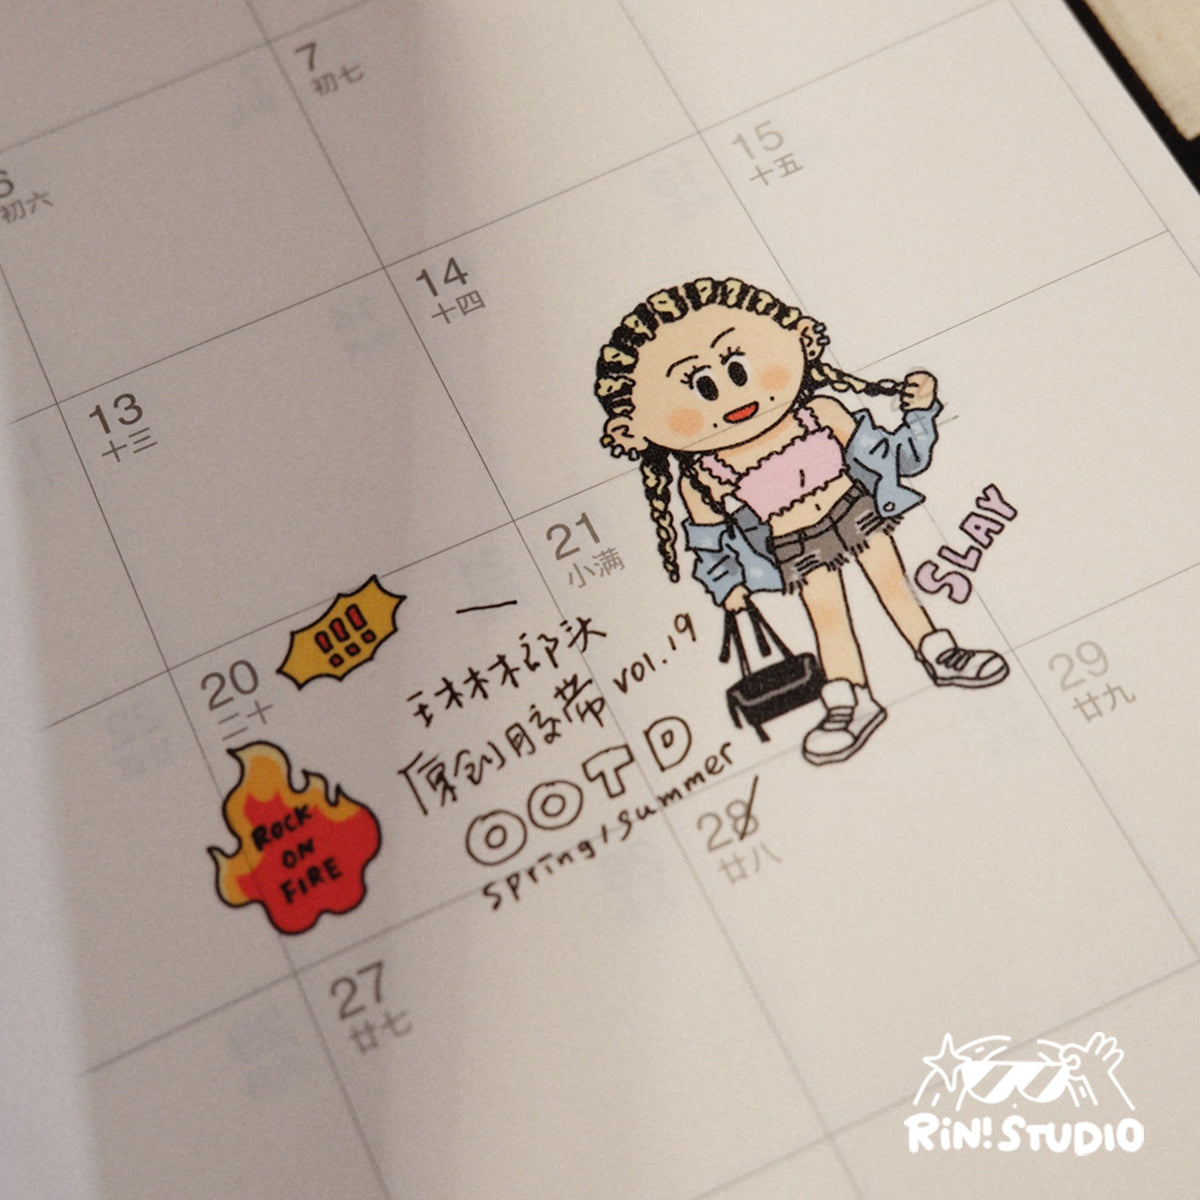 7
初七
6
初六
15
十五
14
十四
13
十三
21
小满
SLAY
!!!
20
二十
琳木部头
原创胶带 vol.19
OOTD
spring/summer
ROCK
ON
FIRE
29
廿九
28
廿八
27
廿七
RiN! STUDIO